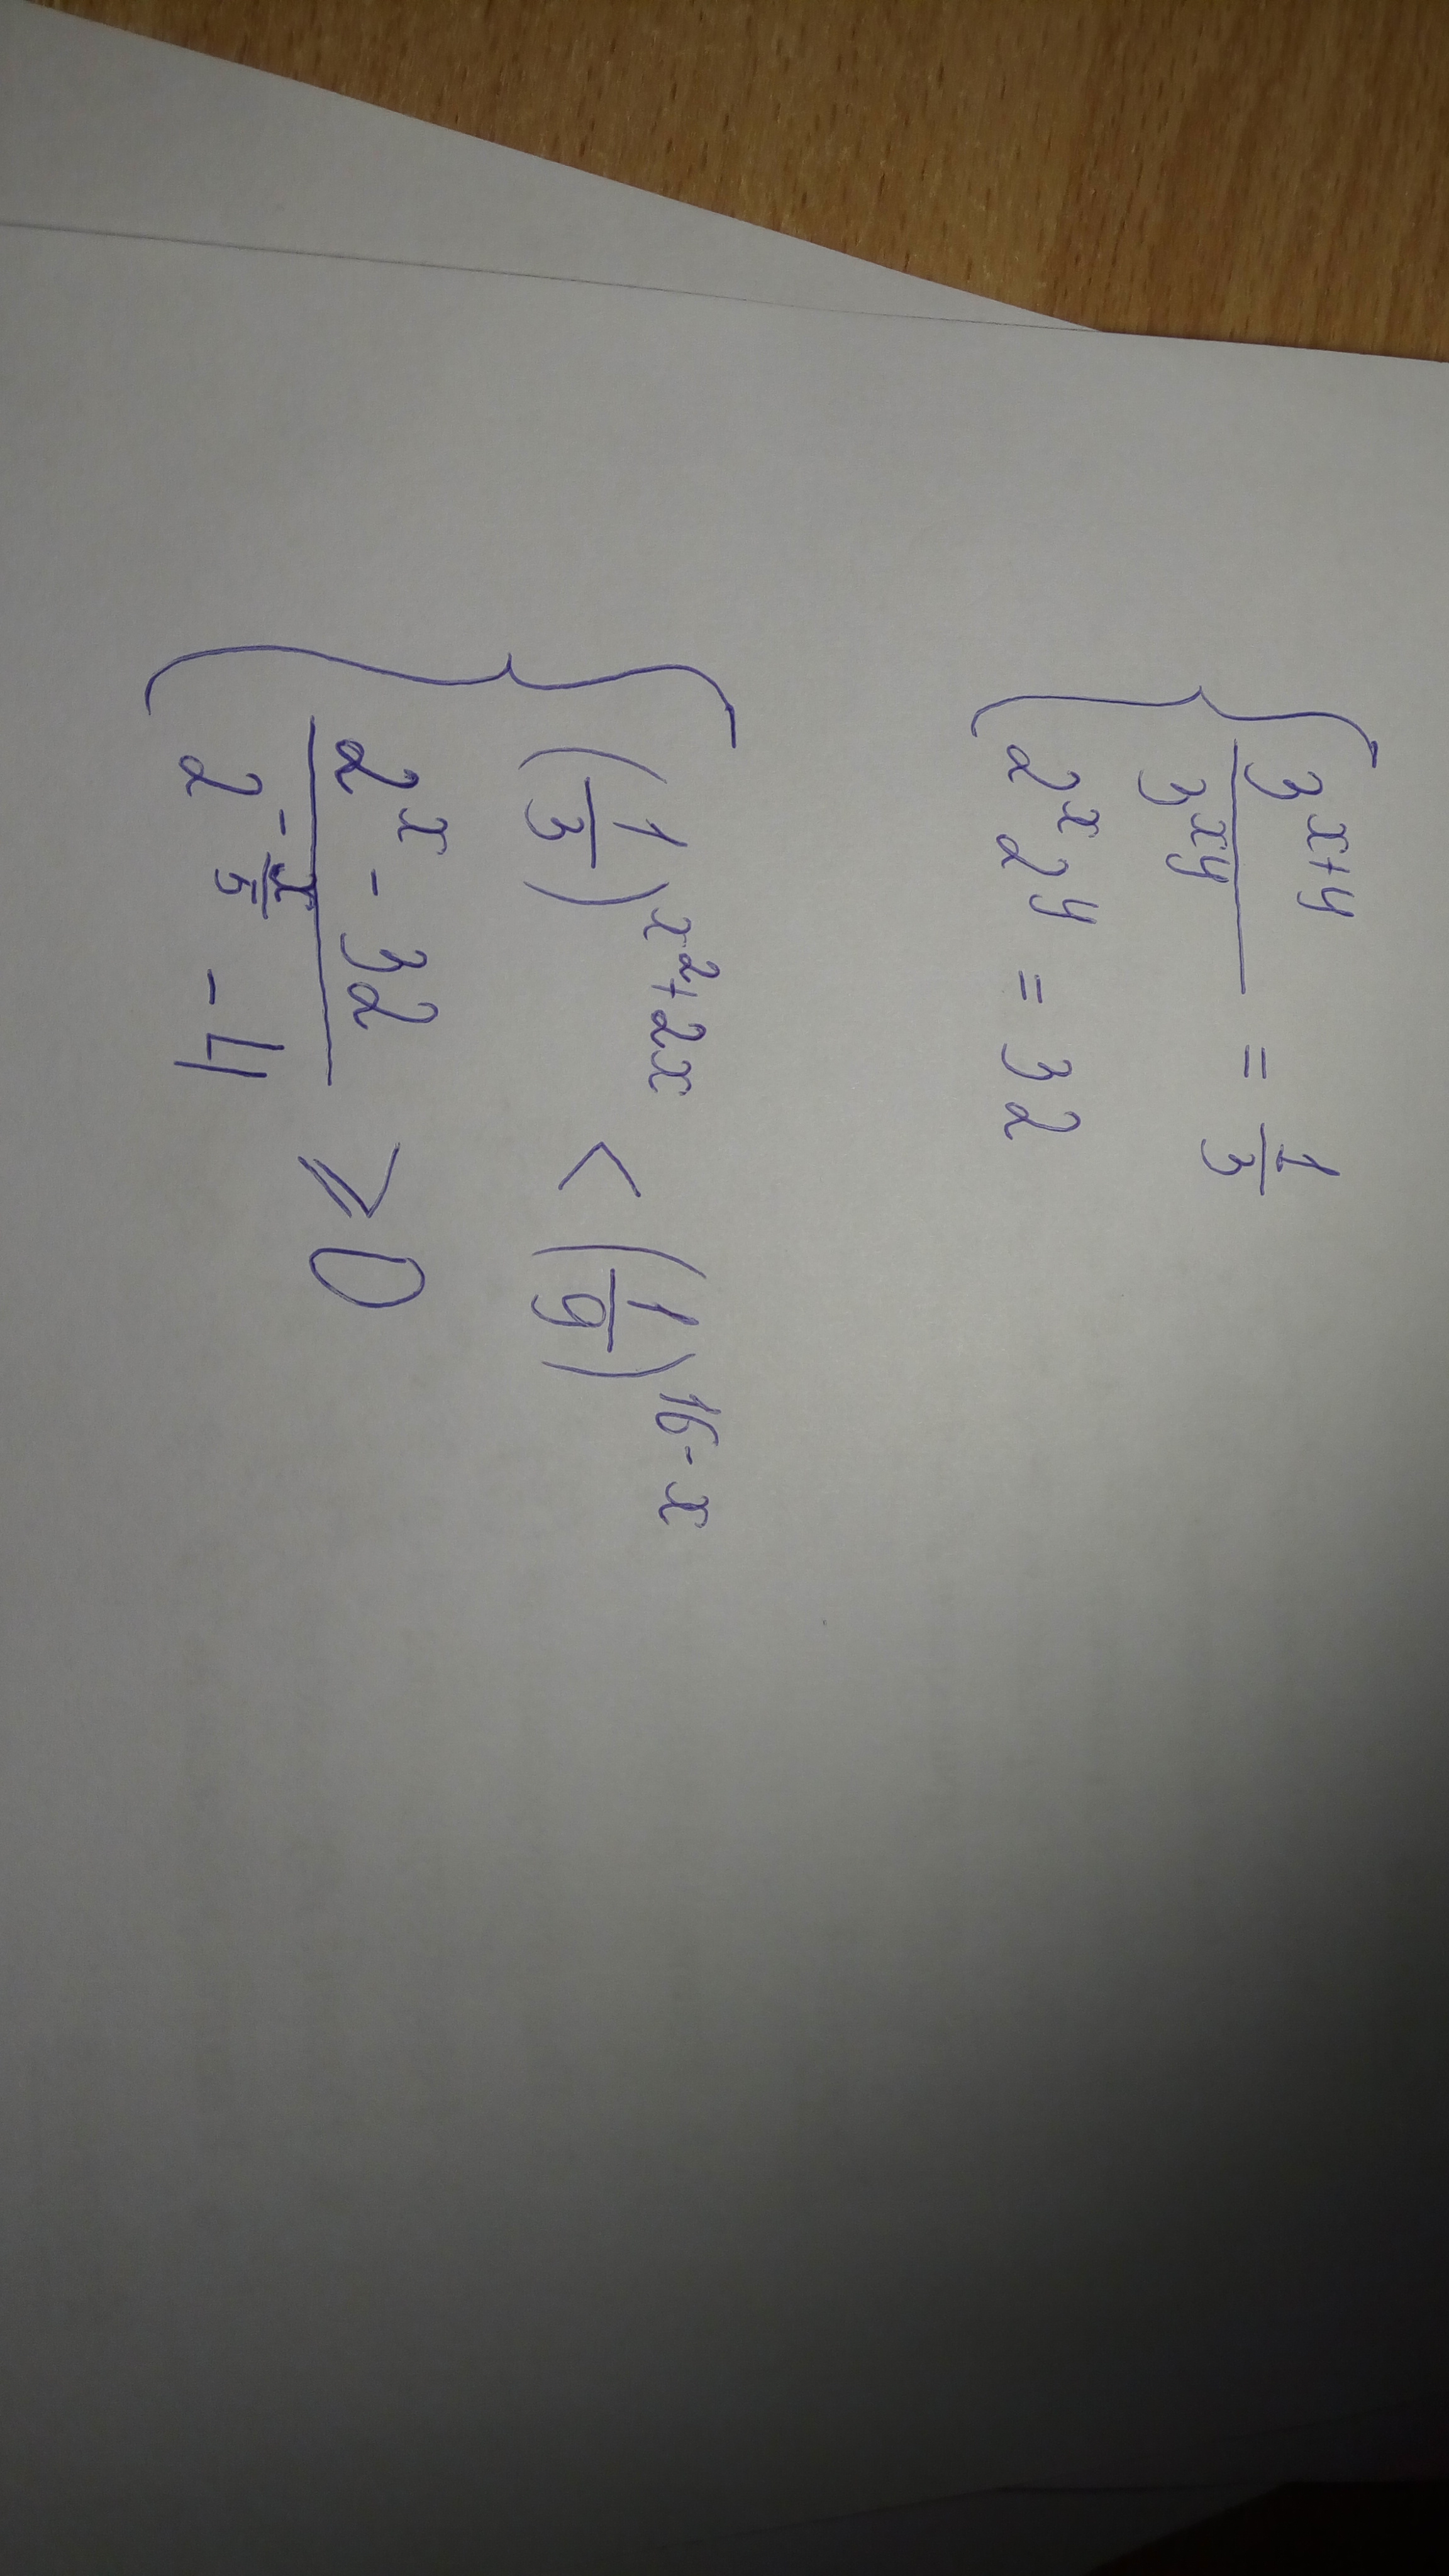 { 3^{x+y} / 3^{xy} = 1/3
2^x 2^y = 32
{ (1/3)^{x^2+2x} < (1/9)^{16-x}
(2^x - 32) / (2^{-x/5} - 4) ⩾ 0